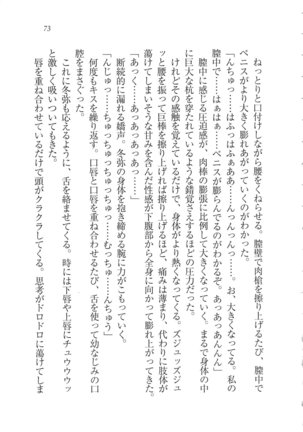 ねっとりと口付けしながら腰をくねらせる。膣壁で肉槍を擦り上げるたび、膣中で
ペニスがより大きく膨れあがっていくのがわかった。
「んちゅっ……はふっはふぁああ……んっんんっ……お、大きくなってる。私の
膣中で……はぁはぁ……ペニスが膨らんでるのがわかるぞ。あっあっあんんん」
膣中に感じる圧迫感が、肉棒の膨張に比例して大きくなっていく、まるで身体の中
に巨大な杭を穿たれているような錯覚さえするほどの圧力だった。
けれどその感触を覚えているだけで、身体がより熱くなってくる。ズジュッズジュ
ッと腰を振って巨棒を擦り上げれば擦り上げるほど、痛みは薄まり、代わりに肢体が
蕩けてしまいそうな甘みを含んだ性感が下腹部から全身に向かって膨れ上がってきた。
「あっく……あっあっあっあっ……」
断続的に漏れる嬌声。冬弥の身体を抱き締める腕に力がこもっていく。
「んじゅっ……ちゅっちゅっちゅっちゅっ……むっちゅ……んちゅう」
何度もキスを繰り返す。口唇と口唇を重ね合わせるたび、舌を使って幼なじみの口
腔をまさぐった。
これに冬弥も応えるように、舌を絡ませてくる。時には下唇や上唇にチュウウウッ
と激しく吸い付いてもきた。
唇を重ね合わせているだけで頭がクラクラしてくる。思考がドロドロに蕩けてしま
73